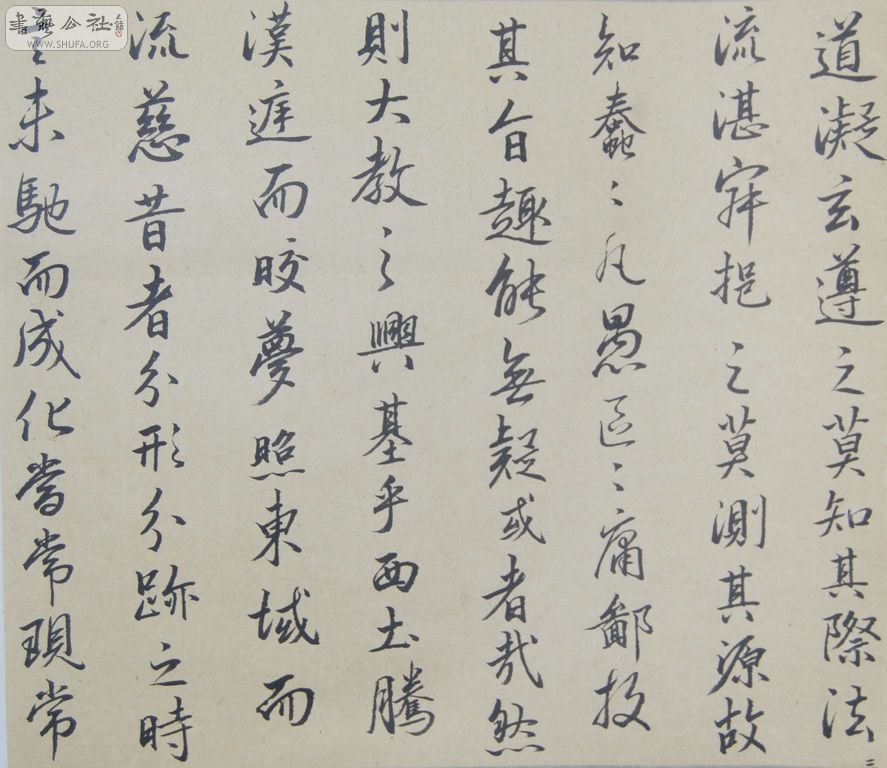 書藝公社
WWW.SHUFA.ORG
道凝玄遵之莫知其際法
流湛寂挹之莫測其源故
知蠢〻凡愚區〻庸鄙投
其旨趣能無疑或者哉然
則大教之興基乎西土騰
漢庭而晈夢照東域而
流慈昔者分形分跡之時
言未馳而成化當常現常
二